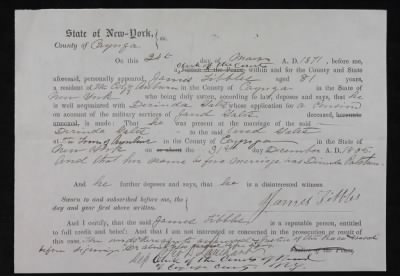 State of New-York,
County of Cayuga
On this 24th day of March A. D. 1871, before me,
Clerk of the Court
within and for the County and State
aforesaid, personally appeared, James Tibbles aged 81 years,
a resident of the City Auburn in the County of Cayuga in the State of
New York who being duly sworn, according to law, deposes and says, that he
is well acquainted with Dirinda Gates whose application for a Pension
on account of the military services of Jared Gates deceased,
is made: That he was present at the marriage of the said
Dirinda Gates to the said Jared Gates
at the Town of in the County of Cayuga in the State of
New York on the day December A. D. 18
And that her name before marriage was Dirinda
And he further deposes and says, that he is a disinterested witness.
James Tibbles
Sworn to and subscribed before me, the
day and year first above written.
And I certify, that the said James Tibbles is a reputable person, entitled
to full credit and belief: And that I am not interested or concerned in the prosecution or result of
this case.
before signing
Dep Clerk of the County of
Cayuga County N.Y.